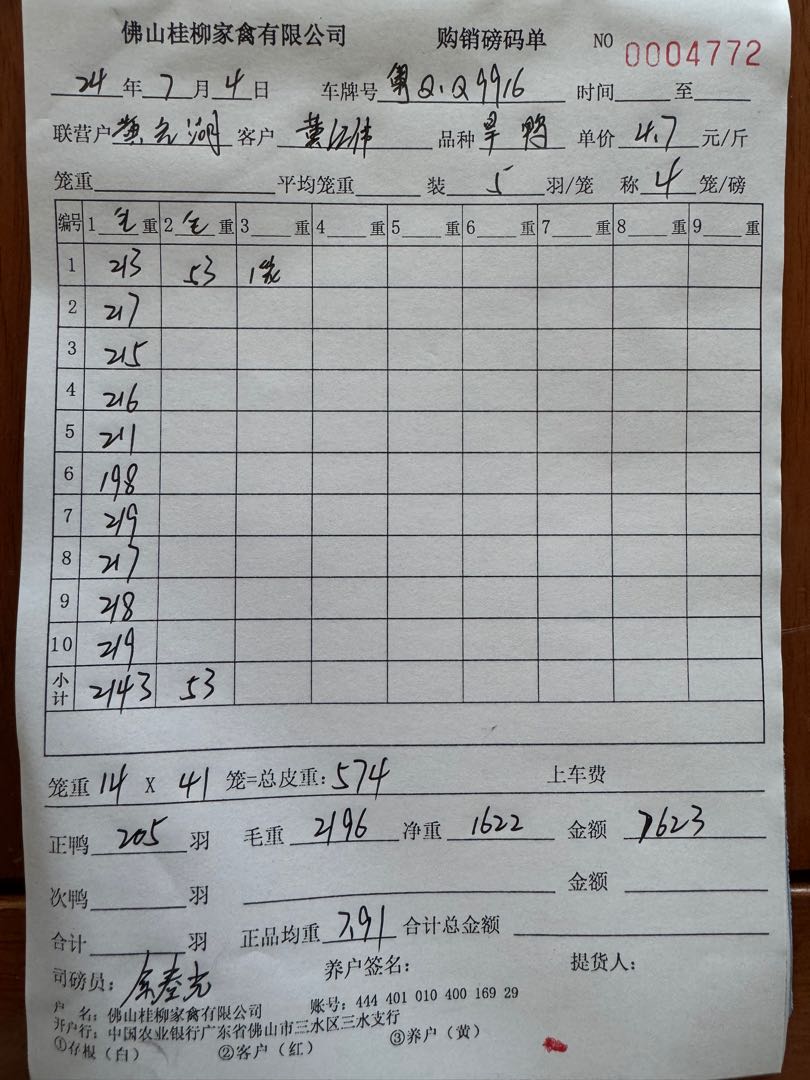 佛山桂柳家禽有限公司 购销磅码单 NO 0004772
24 年 7 月 4 日 车牌号 粤Q·Q9916 时间 至
联营户 黄元湖 客户 黄江伟 品种 旱鸭 单价 4.7 元/斤
笼重 平均笼重 装 5 羽/笼 称 4 笼/磅
编号 1 毛 重 2 毛 重 3 重 4 重 5 重 6 重 7 重 8 重 9 重
1 213 53 1笼
2 217
3 215
4 216
5 211
6 198
7 219
8 217
9 218
10 219
小计 2143 53
笼重 14 X 41 笼=总皮重: 574 上车费
正鸭 205 羽 毛重 2196 净重 1622 金额 7623
次鸭 羽 金额
合计 羽 正品均重 7.91 合计总金额
司磅员: 养户签名: 提货人:
户 名: 佛山桂柳家禽有限公司 账号: 444 401 010 400 169 29
开户行: 中国农业银行广东省佛山市三水区三水支行
①存根(白) ②客户(红) ③养户(黄)